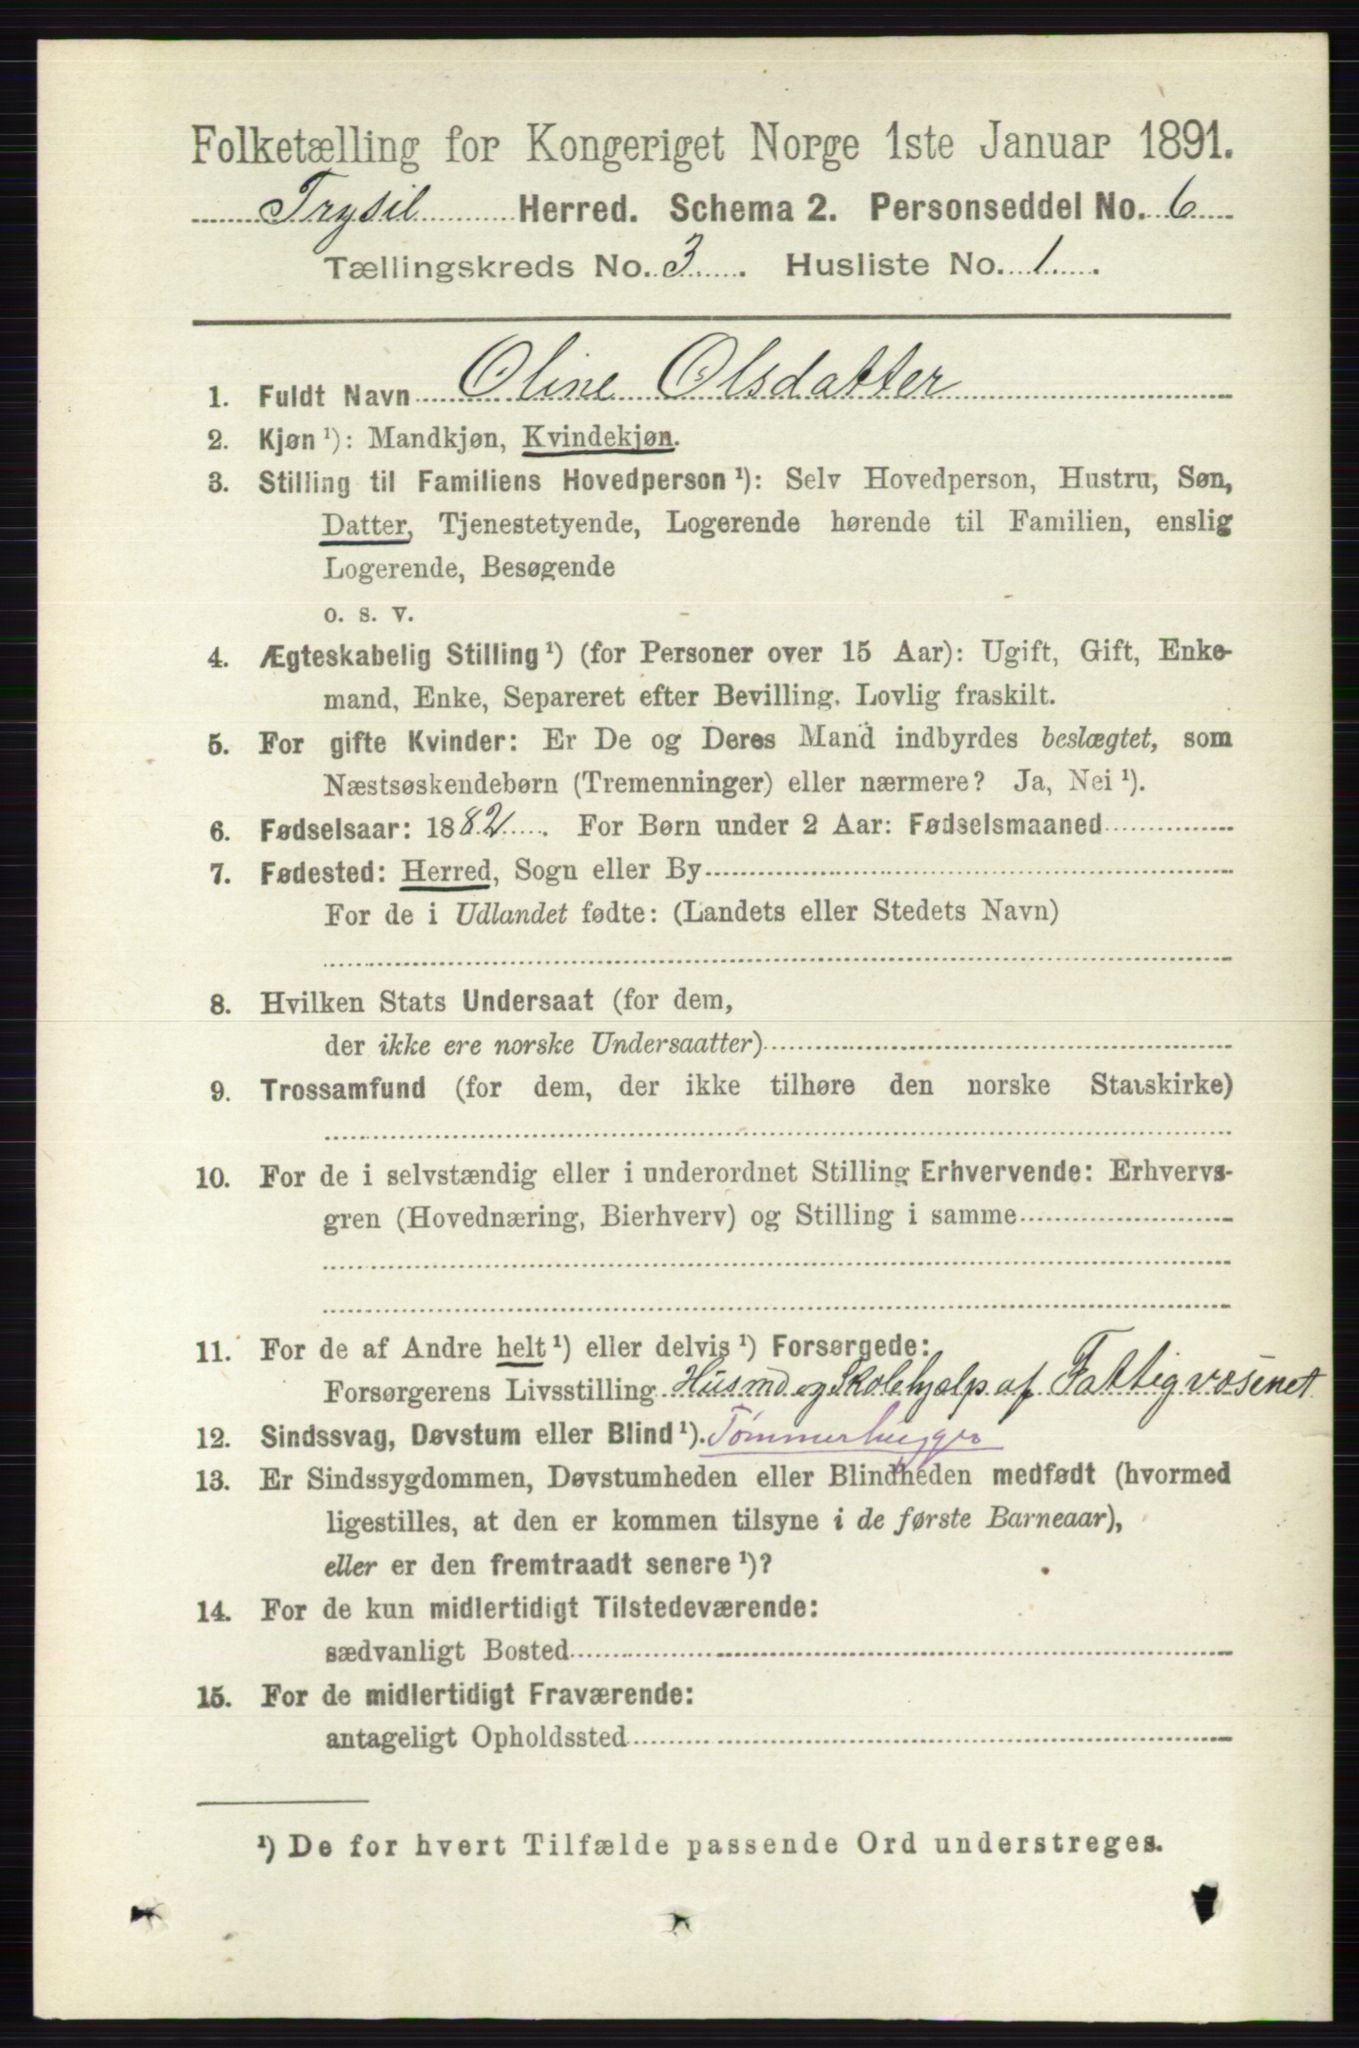 Folketælling for Kongeriget Norge 1ste Januar 1891.
Trysil Herred. Schema 2. Personseddel No. 6
Tællingskreds No. 3. Husliste No. 1.
1. Fuldt Navn Oline Olsdatter
2. Kjøn ¹): Mandkjøn, Kvindekjøn.
3. Stilling til Familiens Hovedperson ¹): Selv Hovedperson, Hustru, Søn,
Datter, Tjenestetyende, Logerende hørende til Familien, enslig
Logerende, Besøgende
o. s. v.
4. Ægteskabelig Stilling ¹) (for Personer over 15 Aar): Ugift, Gift, Enke-
mand, Enke, Separeret efter Bevilling. Lovlig fraskilt.
5. For gifte Kvinder: Er De og Deres Mand indbyrdes beslægtet, som
Næstsøskendebørn (Tremenninger) eller nærmere? Ja, Nei ¹).
6. Fødselsaar: 1882. For Børn under 2 Aar: Fødselsmaaned
7. Fødested: Herred, Sogn eller By
For de i Udlandet fødte: (Landets eller Stedets Navn)
8. Hvilken Stats Undersaat (for dem,
der ikke ere norske Undersaatter)
9. Trossamfund (for dem, der ikke tilhøre den norske Statskirke)
10. For de i selvstændig eller i underordnet Stilling Erhvervende: Erhvervs-
gren (Hovednæring, Bierhverv) og Stilling i samme
11. For de af Andre helt ¹) eller delvis ¹) Forsørgede:
Forsørgerens Livsstilling Husmd og Skolehjælp af Fattigvæsenet
12. Sindssvag, Døvstum eller Blind ¹). Tømmerhugger
13. Er Sindssygdommen, Døvstumheden eller Blindheden medfødt (hvormed
ligestilles, at den er kommen tilsyne i de første Barneaar),
eller er den fremtraadt senere ¹)?
14. For de kun midlertidigt Tilstedeværende:
sædvanligt Bosted
15. For de midlertidigt Fraværende:
antageligt Opholdssted
¹) De for hvert Tilfælde passende Ord understreges.